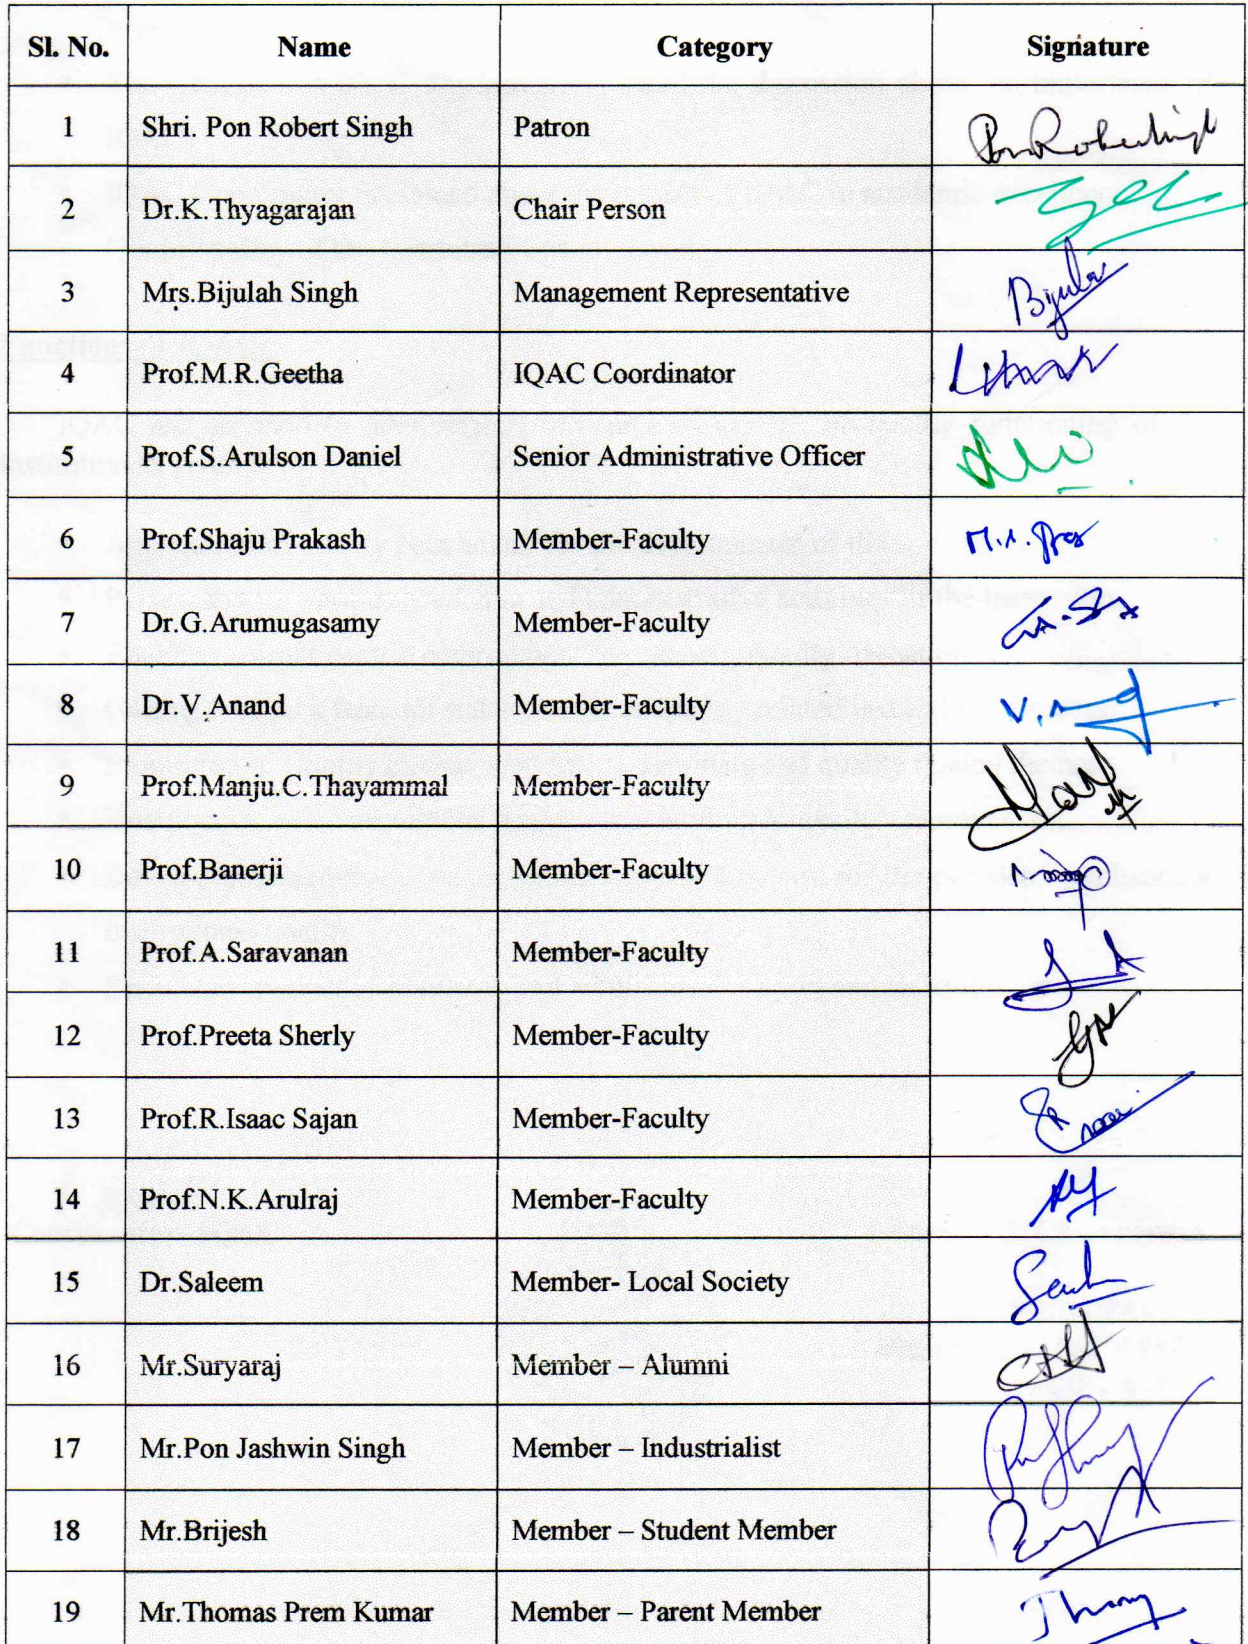 Sl. No. Name Category Signature
1 Shri. Pon Robert Singh Patron
2 Dr.K.Thyagarajan Chair Person
3 Mrs.Bijulah Singh Management Representative Bijula
4 Prof.M.R.Geetha IQAC Coordinator
5 Prof.S.Arulson Daniel Senior Administrative Officer
6 Prof.Shaju Prakash Member-Faculty
7 Dr.G.Arumugasamy Member-Faculty
8 Dr.V.Anand Member-Faculty
9 Prof.Manju.C.Thayammal Member-Faculty
10 Prof.Banerji Member-Faculty
11 Prof.A.Saravanan Member-Faculty
12 Prof.Preeta Sherly Member-Faculty
13 Prof.R.Isaac Sajan Member-Faculty
14 Prof.N.K.Arulraj Member-Faculty
15 Dr.Saleem Member- Local Society
16 Mr.Suryaraj Member – Alumni
17 Mr.Pon Jashwin Singh Member – Industrialist
18 Mr.Brijesh Member – Student Member
19 Mr.Thomas Prem Kumar Member – Parent Member